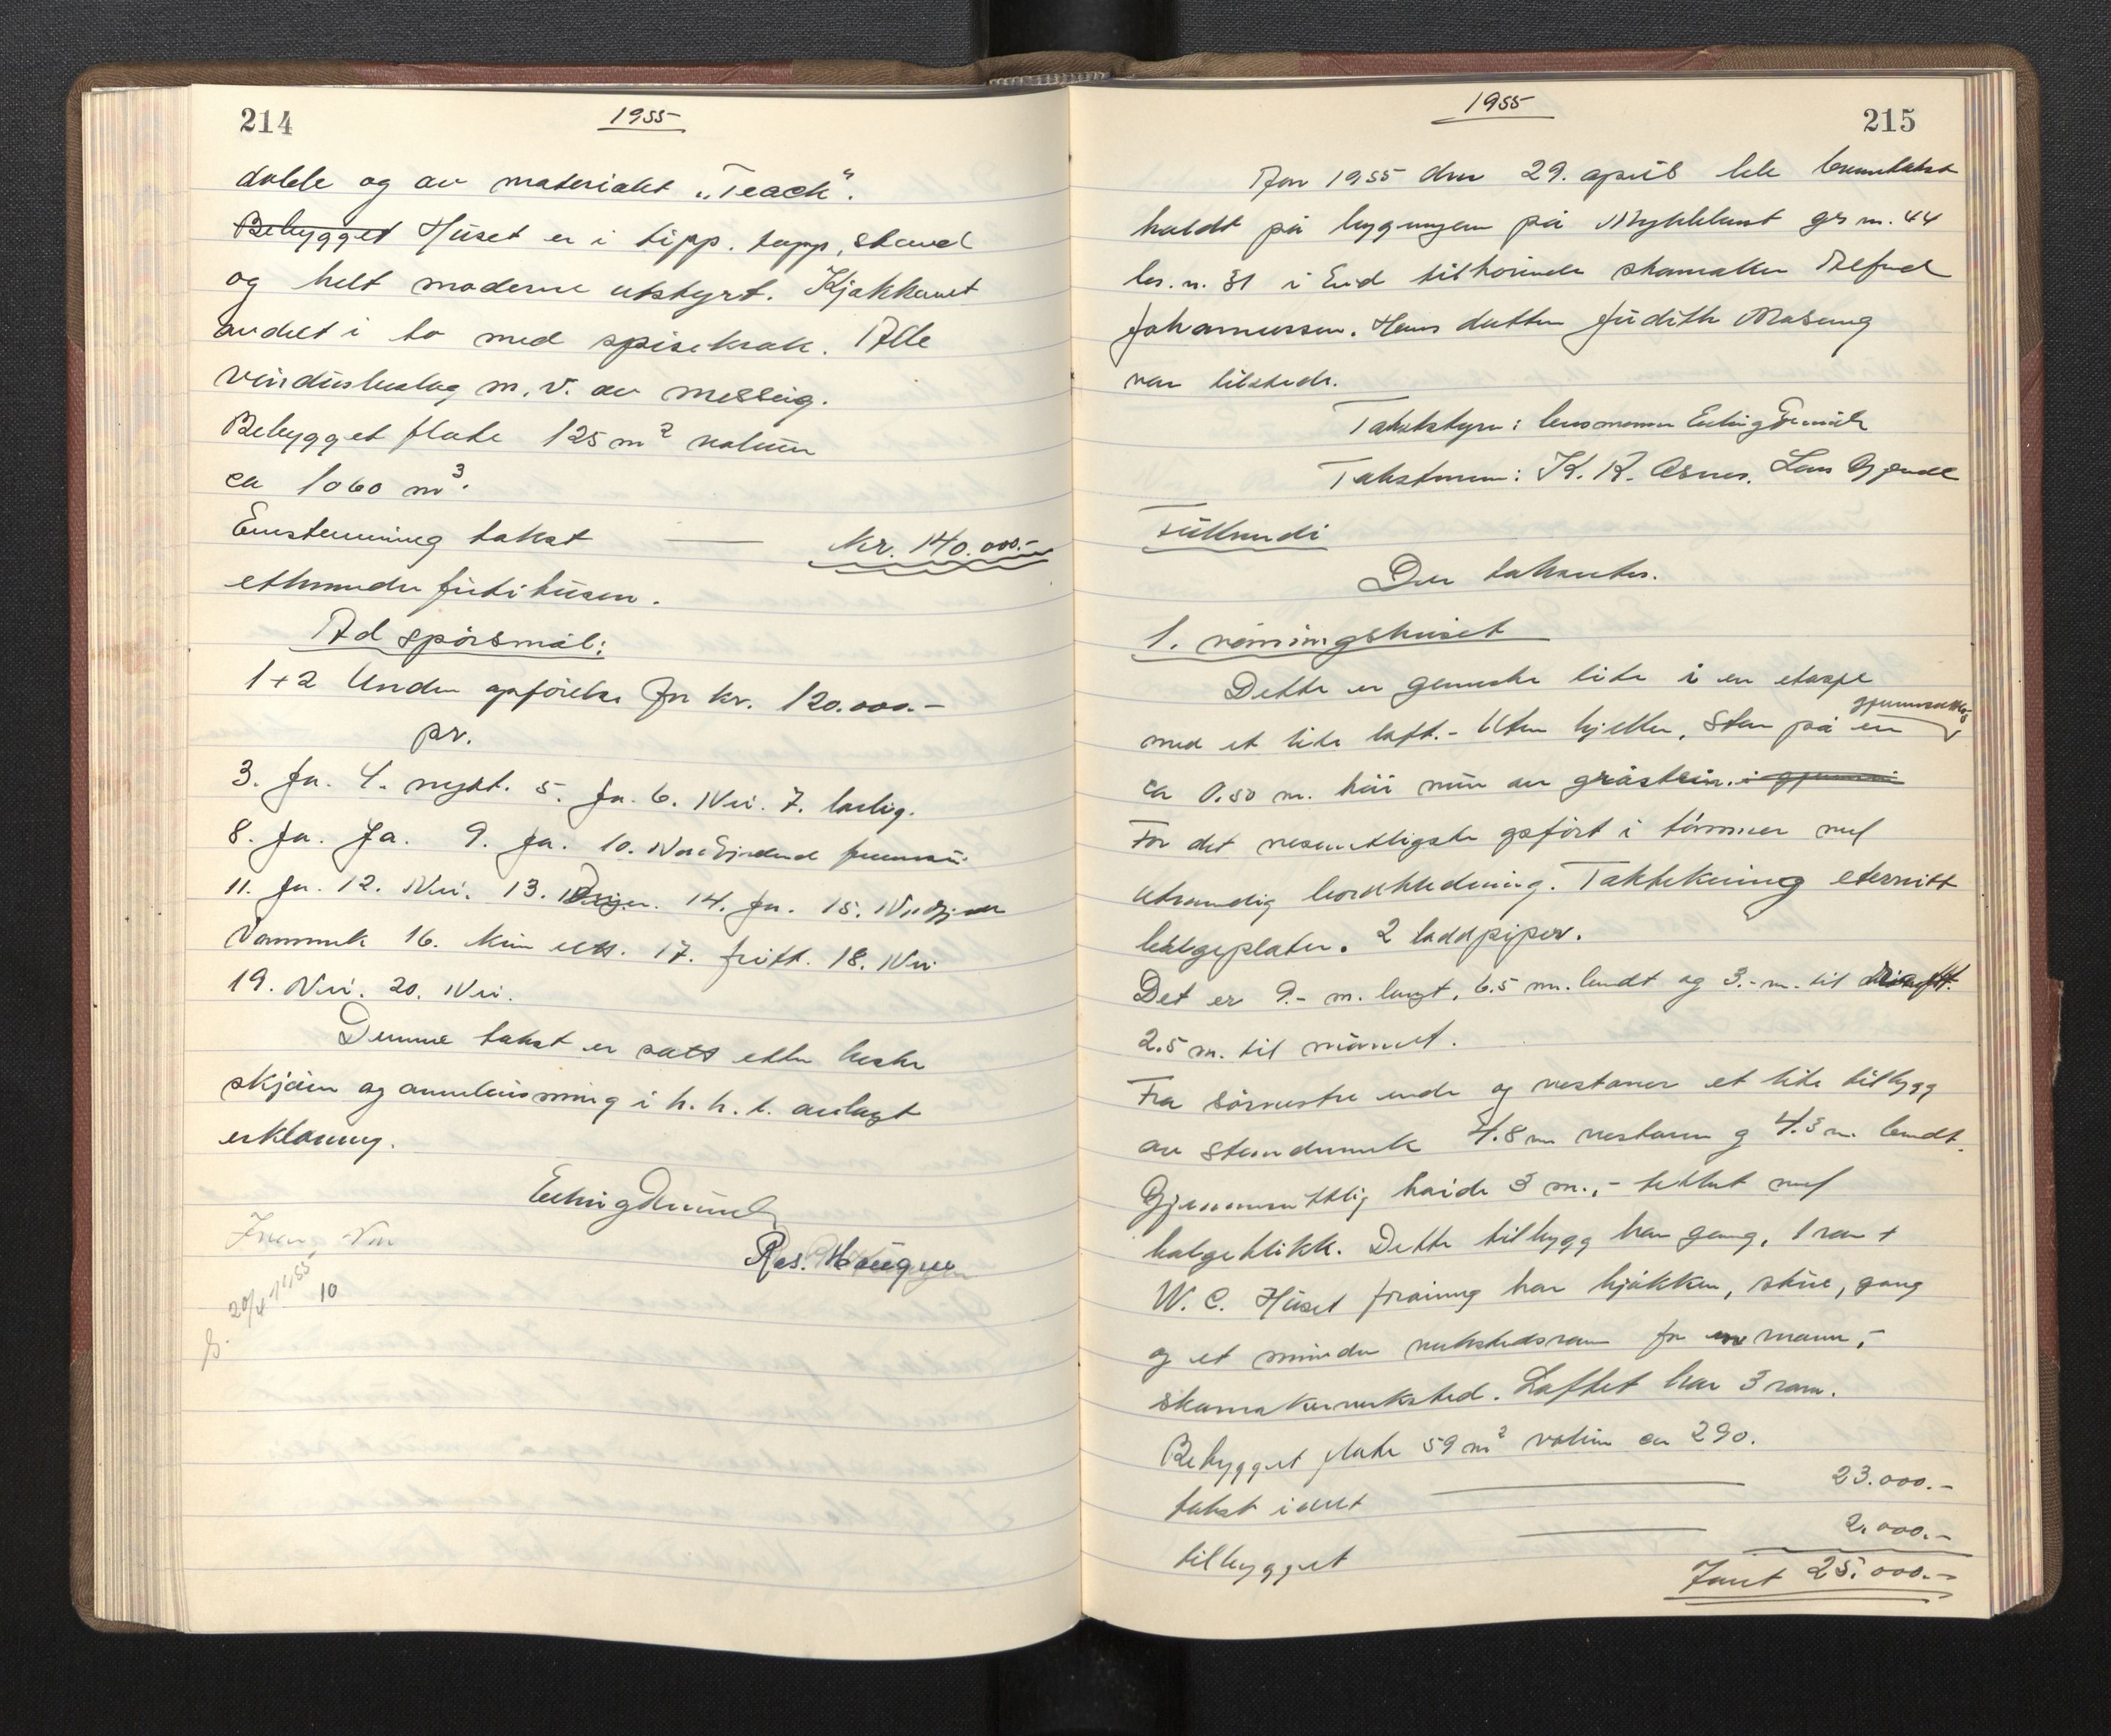 214
1955
doble og av materialet „Teack".
Bebygget Huset er i tipp, topp, stand
og helt moderne utstyrt. Kjøkkenet
avdelt i to med spisekrok. Alle
vindusbeslag m.v. av messing.
Bebygget flate 125 m² volum
ca 1060 m³.
Enstemmig takst — kr. 140.000.-
etthundre førti tusen.
Ad spørsmål:
1+2 Under oppførelse for kr. 120.000.-
pr.
3. Ja. 4. nytt. 5. Ja. 6. Nei. 7. lovlig.
8. Ja. Ja. 9. Ja. 10.
11. Ja. 12. Nei. 13. 14. Ja. 15.
16. 17. fritt. 18. Nei
19. Nei. 20. Nei.
Denne takst er satt etter beste
skjønn og overbevisning i h. h. t. avlagt
erklæring.
Ras. Haugen
20/4 1955
10
1955
215
År 1955 den 29. april ble branntakst
holdt på bygningen på Myklebust gr. nr. 44
br. n. 31 i Eid tilhørende skomaker Alfred
Johannessen. Hans datter Judith Måseng
var tilstede.
Takststyre: lensmannen Erling
Takstmenn: K. K. Osnes. Lars Gjerde
Den takseres.
1. våningshuset
Dette er ganske lite i en etasje
med et lite loft. - Uten kjeller. Står på en gjennomsnittlig
ca 0.50 m. høi mur av gråstein. i gjennom
For det vesentligste opført i tømmer med
utvendig bordkledning. Taktekning eternitt
bølgeplater. 2 loddpiper.
Det er 9.- m. langt, 6.5 m. bredt og 3.- m. til
2.5 m. til mønet.
Fra sørvestre ende og vestover et lite tilbygg
av standerverk 4.8 m vestover og 4.3 m. bredt.
Gjennomsnittlig høide 3 m., - tekket med
bølgeblikk. Dette tilbygg har gang, 1 rom +
W. C. Huset forøvrig har kjøkken, stue, gang
og et mindre verkstedsrom for en mann, -
skomakerverksted. Loftet har 3 rom.
Bebygget flate 59 m² volum ca 290.
takst i alt — 23.000.-
tilbygget — 2.000.-
Samt 25.000.-